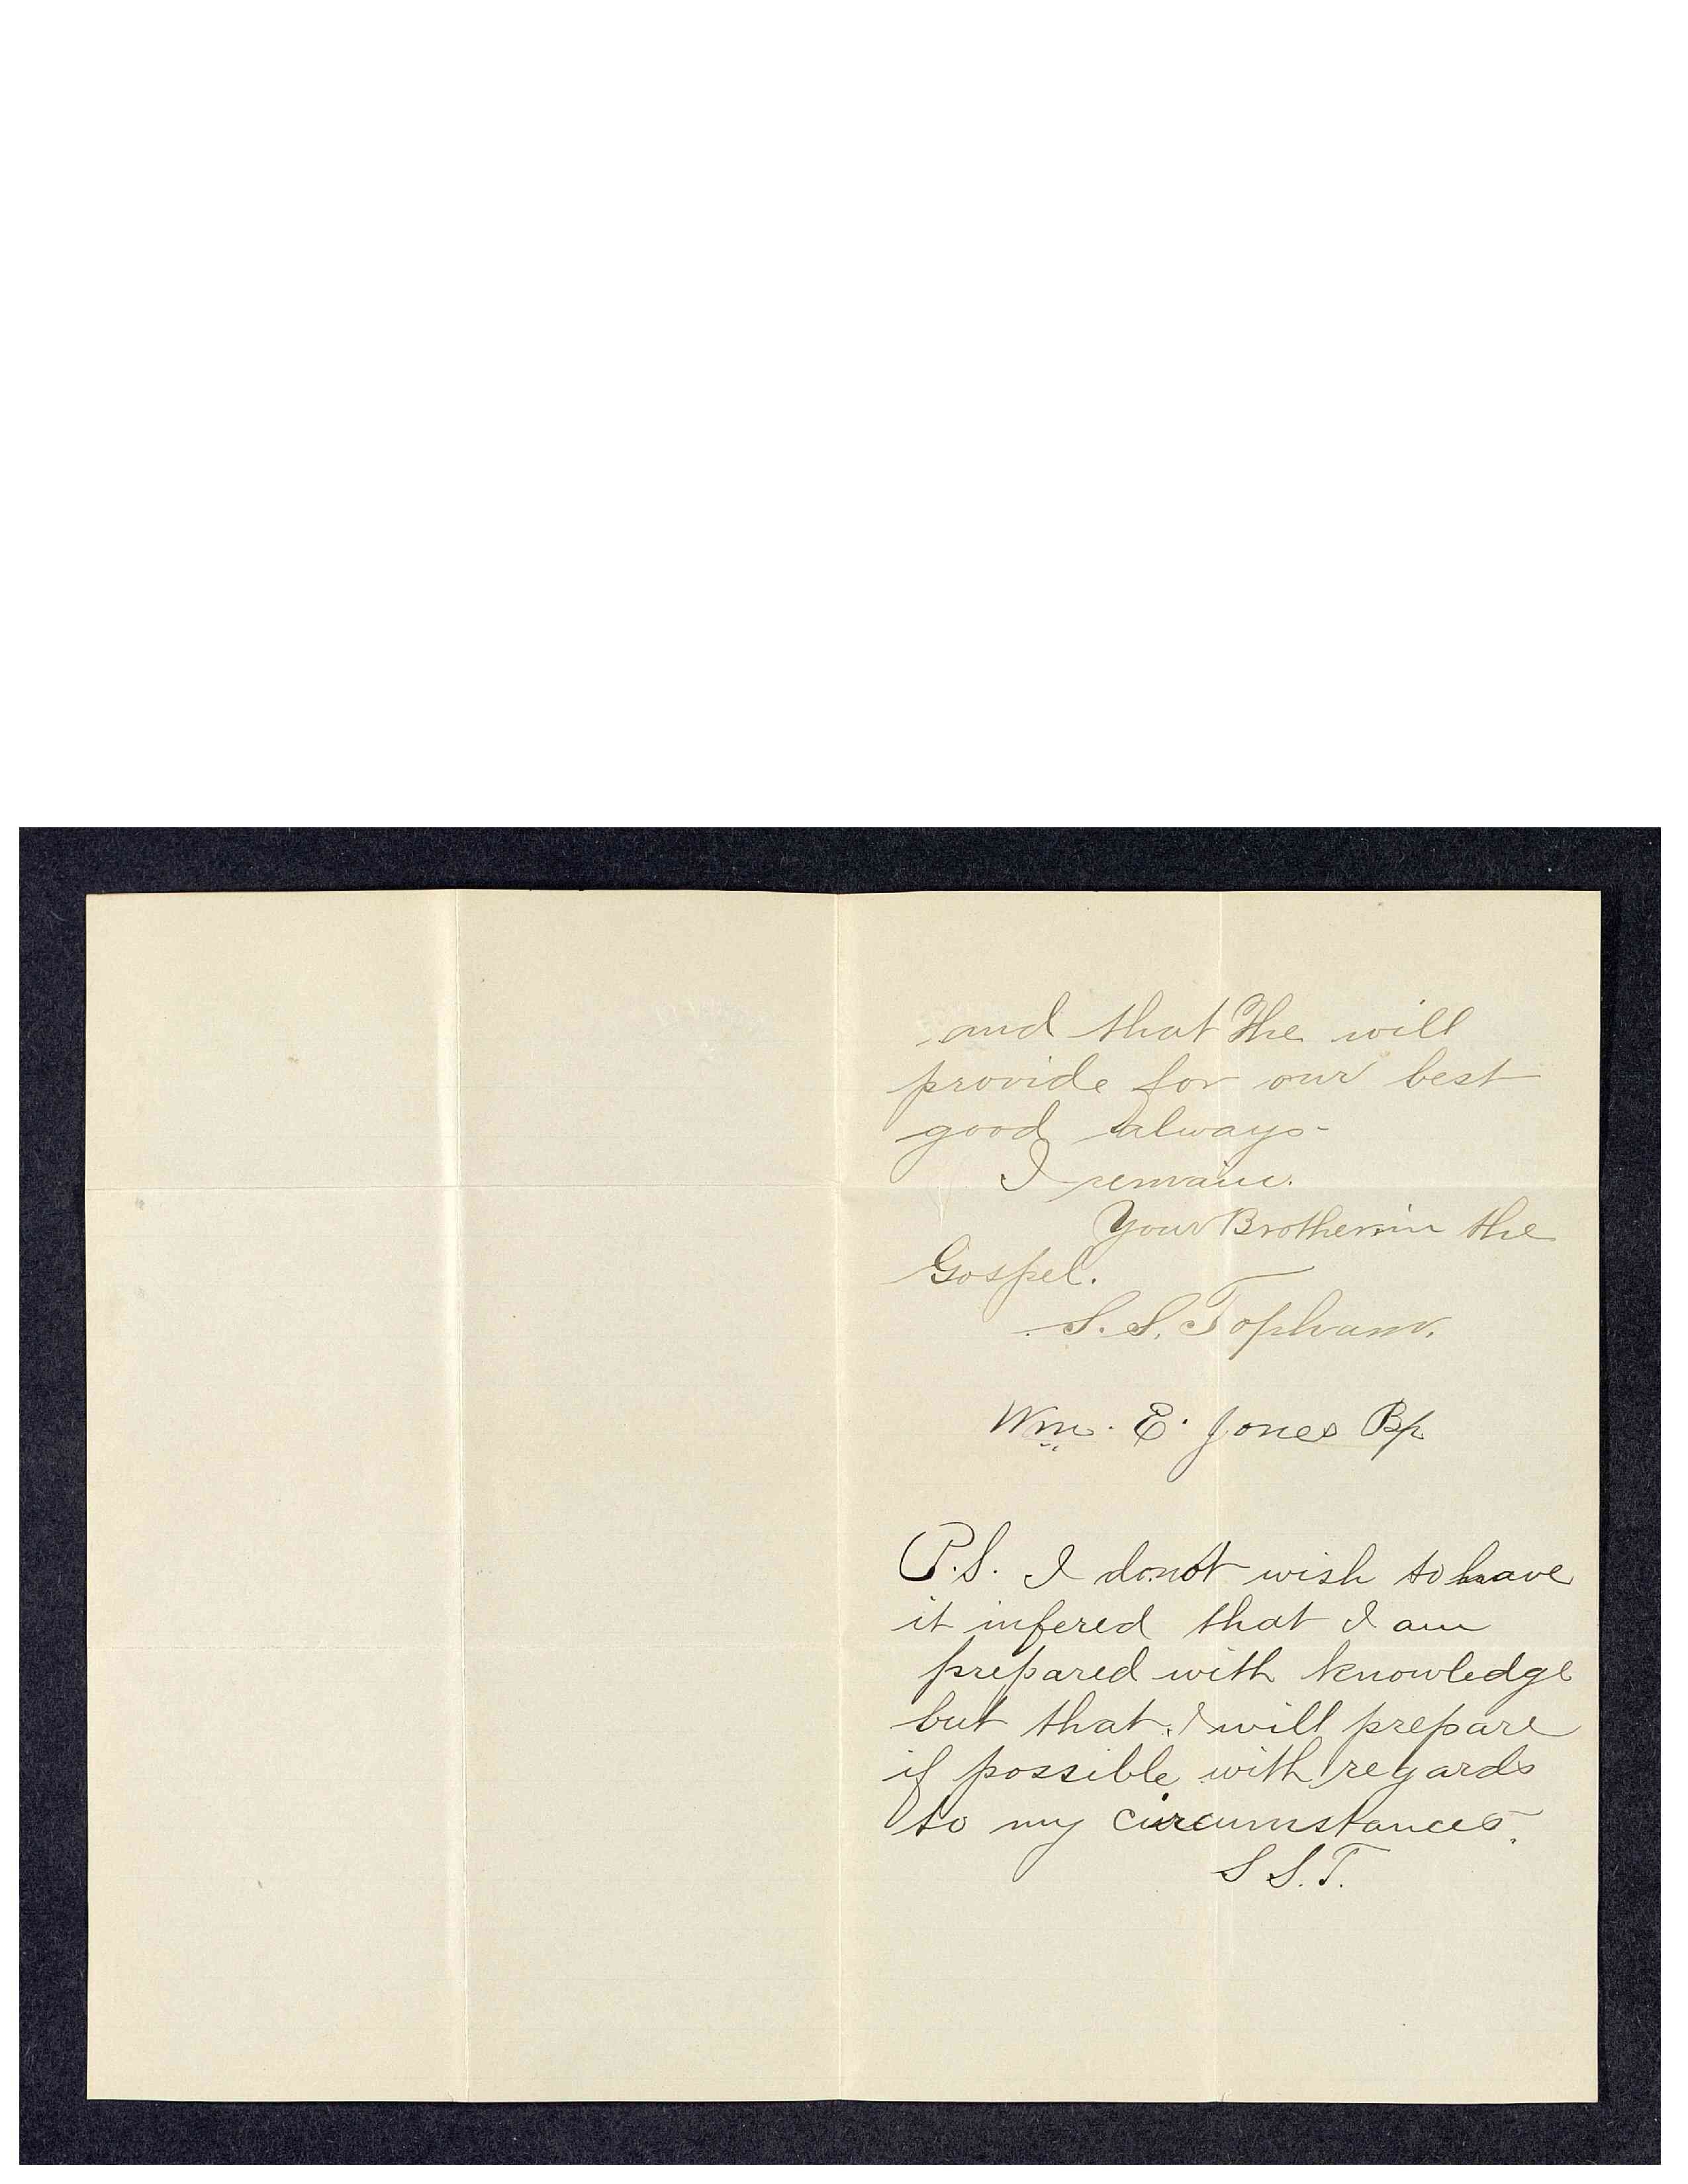 and that He will
provide for our best
good always-
I remain.
Your Brother in the
Gospel.
S. S. Topham.
Wm. E. Jones Bp
P.S. I do not wish to have
it infered that I am
prepared with knowledge
but that I will prepare
if possible with regards
to my circumstances.
S S. T.